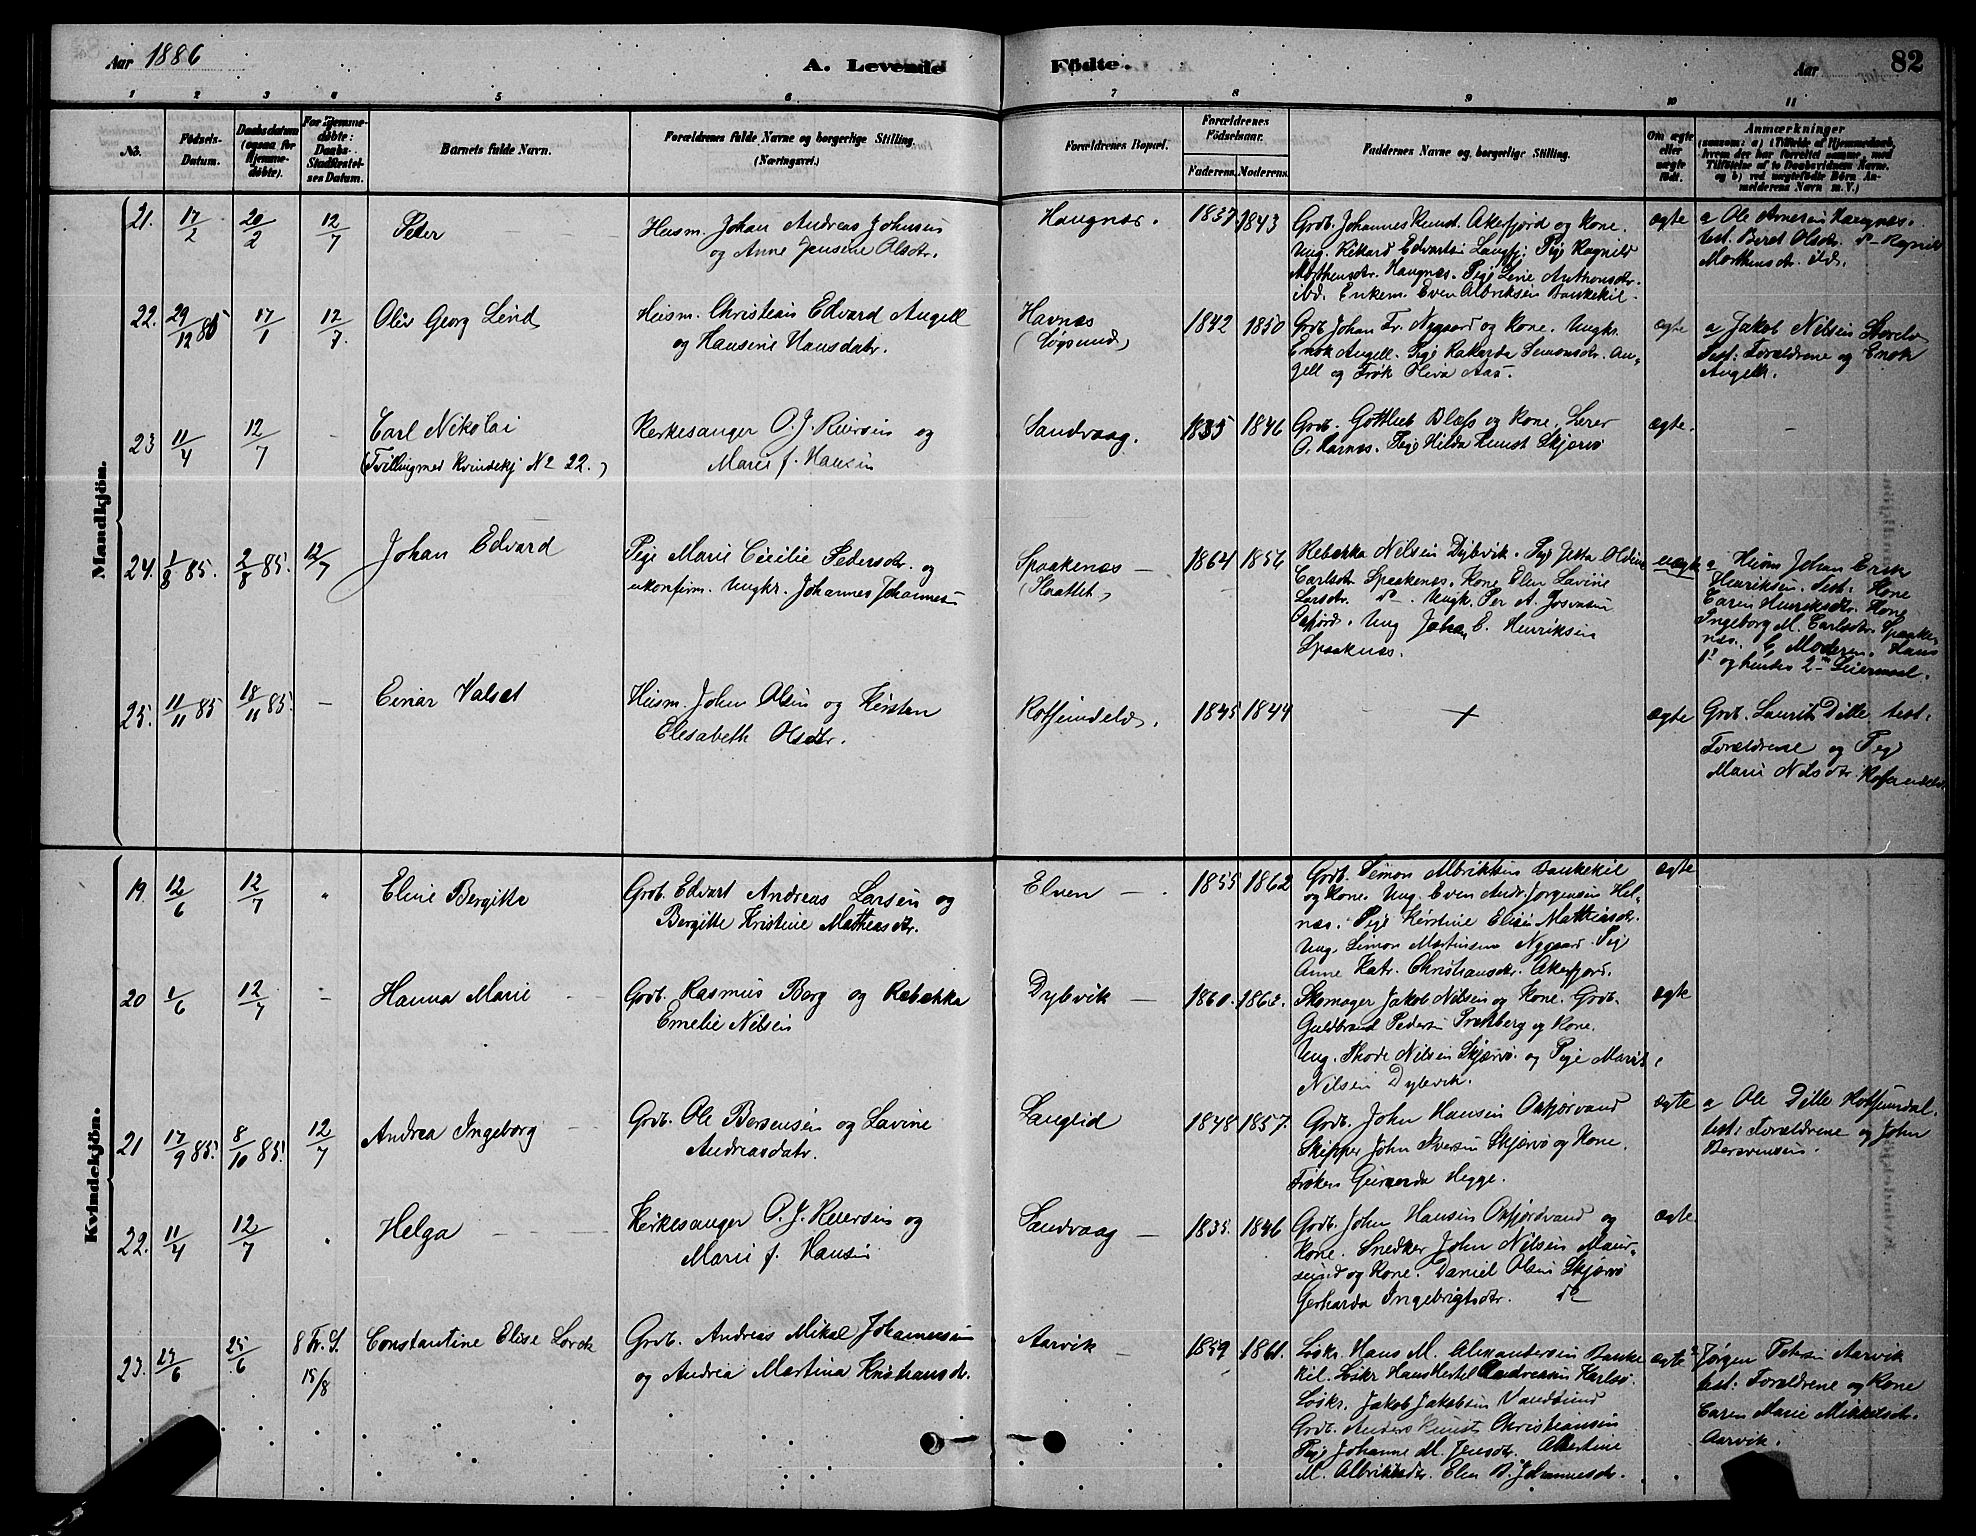 Aar 1886
A. Levende Födte.
Aar
82
1 2 3 4 5 6 7 8 9 10 11
No.
Födsels-Datum.
Daabsdatum (ogsaa for Hjemmedöbte).
For Hjemmedöbte: Daabs-Stadfæstelses Datum.
Barnets fulde Navn.
Forældrenes fulde Navne og borgerlige Stilling. (Næringsvei.)
Forældrenes Bopæl.
Forældrenes Födselsaar.
Faderens. Moderens.
Faddernes Navne og borgerlige Stilling.
Om ægte eller uægte födt.
Anmærkninger
(saasom: a) i Tilfælde af Hjemmedaab, hvem der har forrettet samme, med Tilföielse af to Daabsvidners Navne, og b) ved uægtefödte Börn Anmelderens Navn m. V.)
Mandkjön.
21. 17/2 20/2 12/7 Peter
Husm. Johan Andreas Johnsen
og Anne Jensine Olsdtr.
Haugnæs. 1837 1843
Grdb. Johannes Knut Akefjord og Kone.
Ung. Rikard Edvartsen Langfj. Pige Ragnild
Morthensdtr. Haugnæs. Pige Lene Anthonsdtr.
ibd. Enkem. Even Albriksen Baukekil.
ægte
a Ole Arnesen Haugnæs.
test. Beret Olsdtr. do Ragnild
Morthensdtr. ibd.
22. 29/12 85 17/1 12/7. Olav Georg Lind
Husm. Christian Edvard Angell
og Hansine Hansdatr.
Havnæs
(Løgsund) 1842 1850
Grdb. Johan Fr. Nygaard og Kone. Ungkr.
Enok Angell. Pige Rakarda Simonsdtr. An-
gell og Frøk Oliva Aas.
ægte
a Jakob Nilsen Storelv
Test: Forældrene og Enok
Angell.
23 11/4 12/7 - Carl Nikolai
(Tvilling med Kvindekj No 22.)
Kirkesanger O. J. Reiersen og
Marie f. Hansen
Sandvaag. 1835 1846
Grdb. Gottlieb Blæss og Kone, Lærer
O. Karnes. Pige Hilda Kunst Skjervø
ægte. -
24. 1/8 85. 2/8 85. 12/7 Johan Edvard
Pige Marie Cecilie Pedersdtr. og
ukonfirm. Ungkr. Johannes Johannesen
Spaakenæs
(Slaattet) 1864 1856
Rebekka Nilsen Dybvik. Pige Jetta Oldine
Carlsdtr. Spaakenæs. Kone Elen Lavine
Larsdtr. do. Ungk. Per A. Josvasen
Oxfjord. Ung Johan E. Henriksen
Spaaknæs.
uægte
a Husm Johan Erik
Henriksen. Test: Kone
Caren Henriksdtr. Kone
Ingeborg M. Carlsdtr. Spaaken-
næs. b Moderen. Hans
1ste og hendes 2den Leiermaal.
25. 11/11 85 18/11 85. - Einar Valset
Husm. John Olsen og Kirsten
Elesabeth Olsdtr.
Rotsundelv. 1845 1844
+
ægte
Grdb. Laurits Dille test:
Forældrene og Pige
Marie Nilsdtr. Rotsundelv.
Kvindekjön.
19. 12/6 12/7 " Eline Bergitte
Grdb. Edvart Andreas Larsen og
Bergitte Kristine Matheasdtr.
Elven 1855 1862
Grdb. Simon Albriktsen Baukekil
og Kone. Ung. Even Andr. Jørgensen Hel-
næs. Pige Kirstine Elise Mathiasdtr.
Ung. Simon Martinsen Nygaard. Pige
Anne Katr. Christiansdtr. Akefjord.
ægte
20 1/6 12/7 - Hanna Marie
Grdb. Rasmus Berg og Rebekka
Emelie Nilsen
Dybvik 1860. 1862.
Skomager Jakob Nilsen og Kone. Grdb.
Guldbrand Pedersen Brekberg og Kone.
Ung. Thode Nilsen Skjærvø. og Pige Marit
Nilsen Dybvik.
ægte
21 17/9 85. 8/10 85. 12/7 Andrea Ingeborg
Grdb. Ole Bersensen og Lavine
Andreasdatr.
Langlid 1848 1857.
Grdb. John Hansen Oxfjorvand
Skipper John Iversen Skjærvø og Kone.
Frøken Geirarda Hegge.
ægte
a Ole Dille Rotsundal.
test: Forældrene og John
Bersvensen.
22. 11/4 12/7 " Helga
Kirkesanger O. J. Reiersen og
Marie f. Hansen
Sandvaag 1835. 1846
Grdb. John Hansen Oxfjordvand og
Kone. Snedker John Nilsen Maur-
sund og Kone. Daniel Olsen Skjærvø
Gerharda Ingebrigtsdtr. do
ægte
23. 23/6 25/6 8 Tr. S. 15/8 Constantine Elise Lorck
Grdb. Andreas Mikal Johannesen
og Andrea Martina Kristiansdtr.
Aarvik 1859 1861.
Løskr. Hans M. Alexandersen Bauke-
kil. Løskr Hans Hertel Andreassen Karlsø.
Løskr. Jakob Jakobsen Vandsund
Grdb. Anders Kunst Christiansen
Pige Johanne M. Jensdtr. Albertine
M. Albriktsdtr. Elen B. Johannesdtr.
ægte
a Jørgen Petersen Aarvik
test: Forældrene og Kone
Caren Marie Mikkelsdtr.
Aarvik.